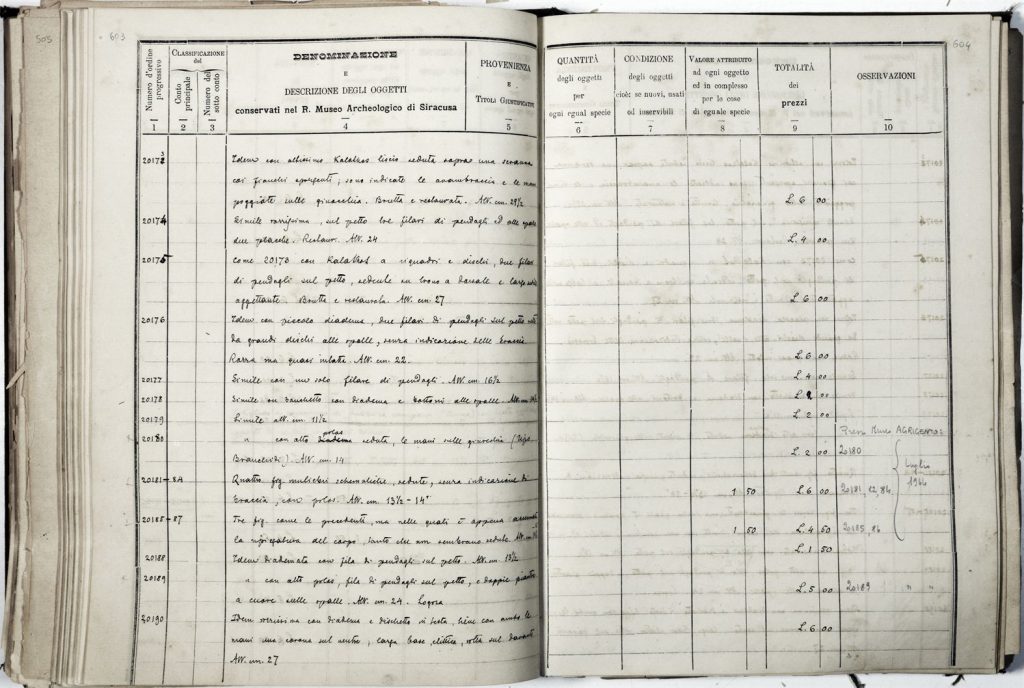 505
603
604
Numero d'ordine progressivo
CLASSIFICAZIONE del
Conto principale
Numero del sotto conto
DENOMINAZIONE
E
DESCRIZIONE DEGLI OGGETTI
conservati nel R. Museo Archeologico di Siracusa
PROVENIENZA
E
TITOLI GIUSTIFICATIVI
QUANTITÀ
degli oggetti
per
ogni egual specie
CONDIZIONE
degli oggetti
cioè: se nuovi, usati
od inservibili
VALORE ATTRIBUITO
ad ogni oggetto
ed in complesso
per le cose
di eguale specie
TOTALITÀ
dei
prezzi
OSSERVAZIONI
1 2 3 4 5 6 7 8 9 10
20173 Idem con altissimo Kalathos liscio seduta sopra una
coi fianchi sporgenti; sono indicate le avambraccia e le mani
poggiate sulle ginocchia. Brutta e restaurata. Alt. cm. 29½ L. 6 00
20174 Simile rarissima, sul petto tre filari di pendagli ed alle spalle
due placche. Restaur. Alt. 24 L. 4 00
20175 Come 20173 con Kalathos a riquadri e dischi, due filari
di pendagli sul petto, sedente su trono a dorsale e largo
aggettante. Brutta e restaurata. Alt. cm. 27 L. 6 00
20176 Idem con piccolo diadema, due filari di pendagli sul petto
da grandi dischi alle spalle, senza indicazione delle braccia
Rozza ma quasi intatta. Alt. cm. 22. L. 6 00
20177 Simile con un solo filare di pendagli. Alt. cm. 16½ L. 4 00
20178 Simile su banchetto con diadema e bottoni alle spalle. Alt. cm. L. 00
20179 Simile alt. cm. 11½ L. 2 00
20180 " con alto polos seduta, le mani sulle ginocchia (
Branchidi). Alt. cm. 14 L. 2 00
Presso Museo AGRIGENTO:
20180
Luglio
1966
20181-84 Quattro fig. muliebri schematiche, sedute, senza indicazione di
braccia, con polos. Alt. cm. 13½ - 14 1 50 L. 6 00 20181, 82, 84
20185-87 Tre fig. come le precedenti, ma nelle quali è appena accennata
la ripiegatura del corpo, tanto che non sembrano sedute. Alt. cm. 1 50 L. 4 50 20185, 86
20188 Idem diademata con fila di pendagli sul petto. Alt. cm. 13½ L. 1 50
20189 " con alto polos, fila di pendagli sul petto, e doppie piastre
a cuore sulle spalle. Alt. cm. 24. Logora L. 5 00 20189 " "
20190 Idem con diadema e dischetto in testa, tiene con ambo le
mani una corona sul ventre, larga base ellittica, volta sul davanti
Alt. cm. 27 L. 6 00